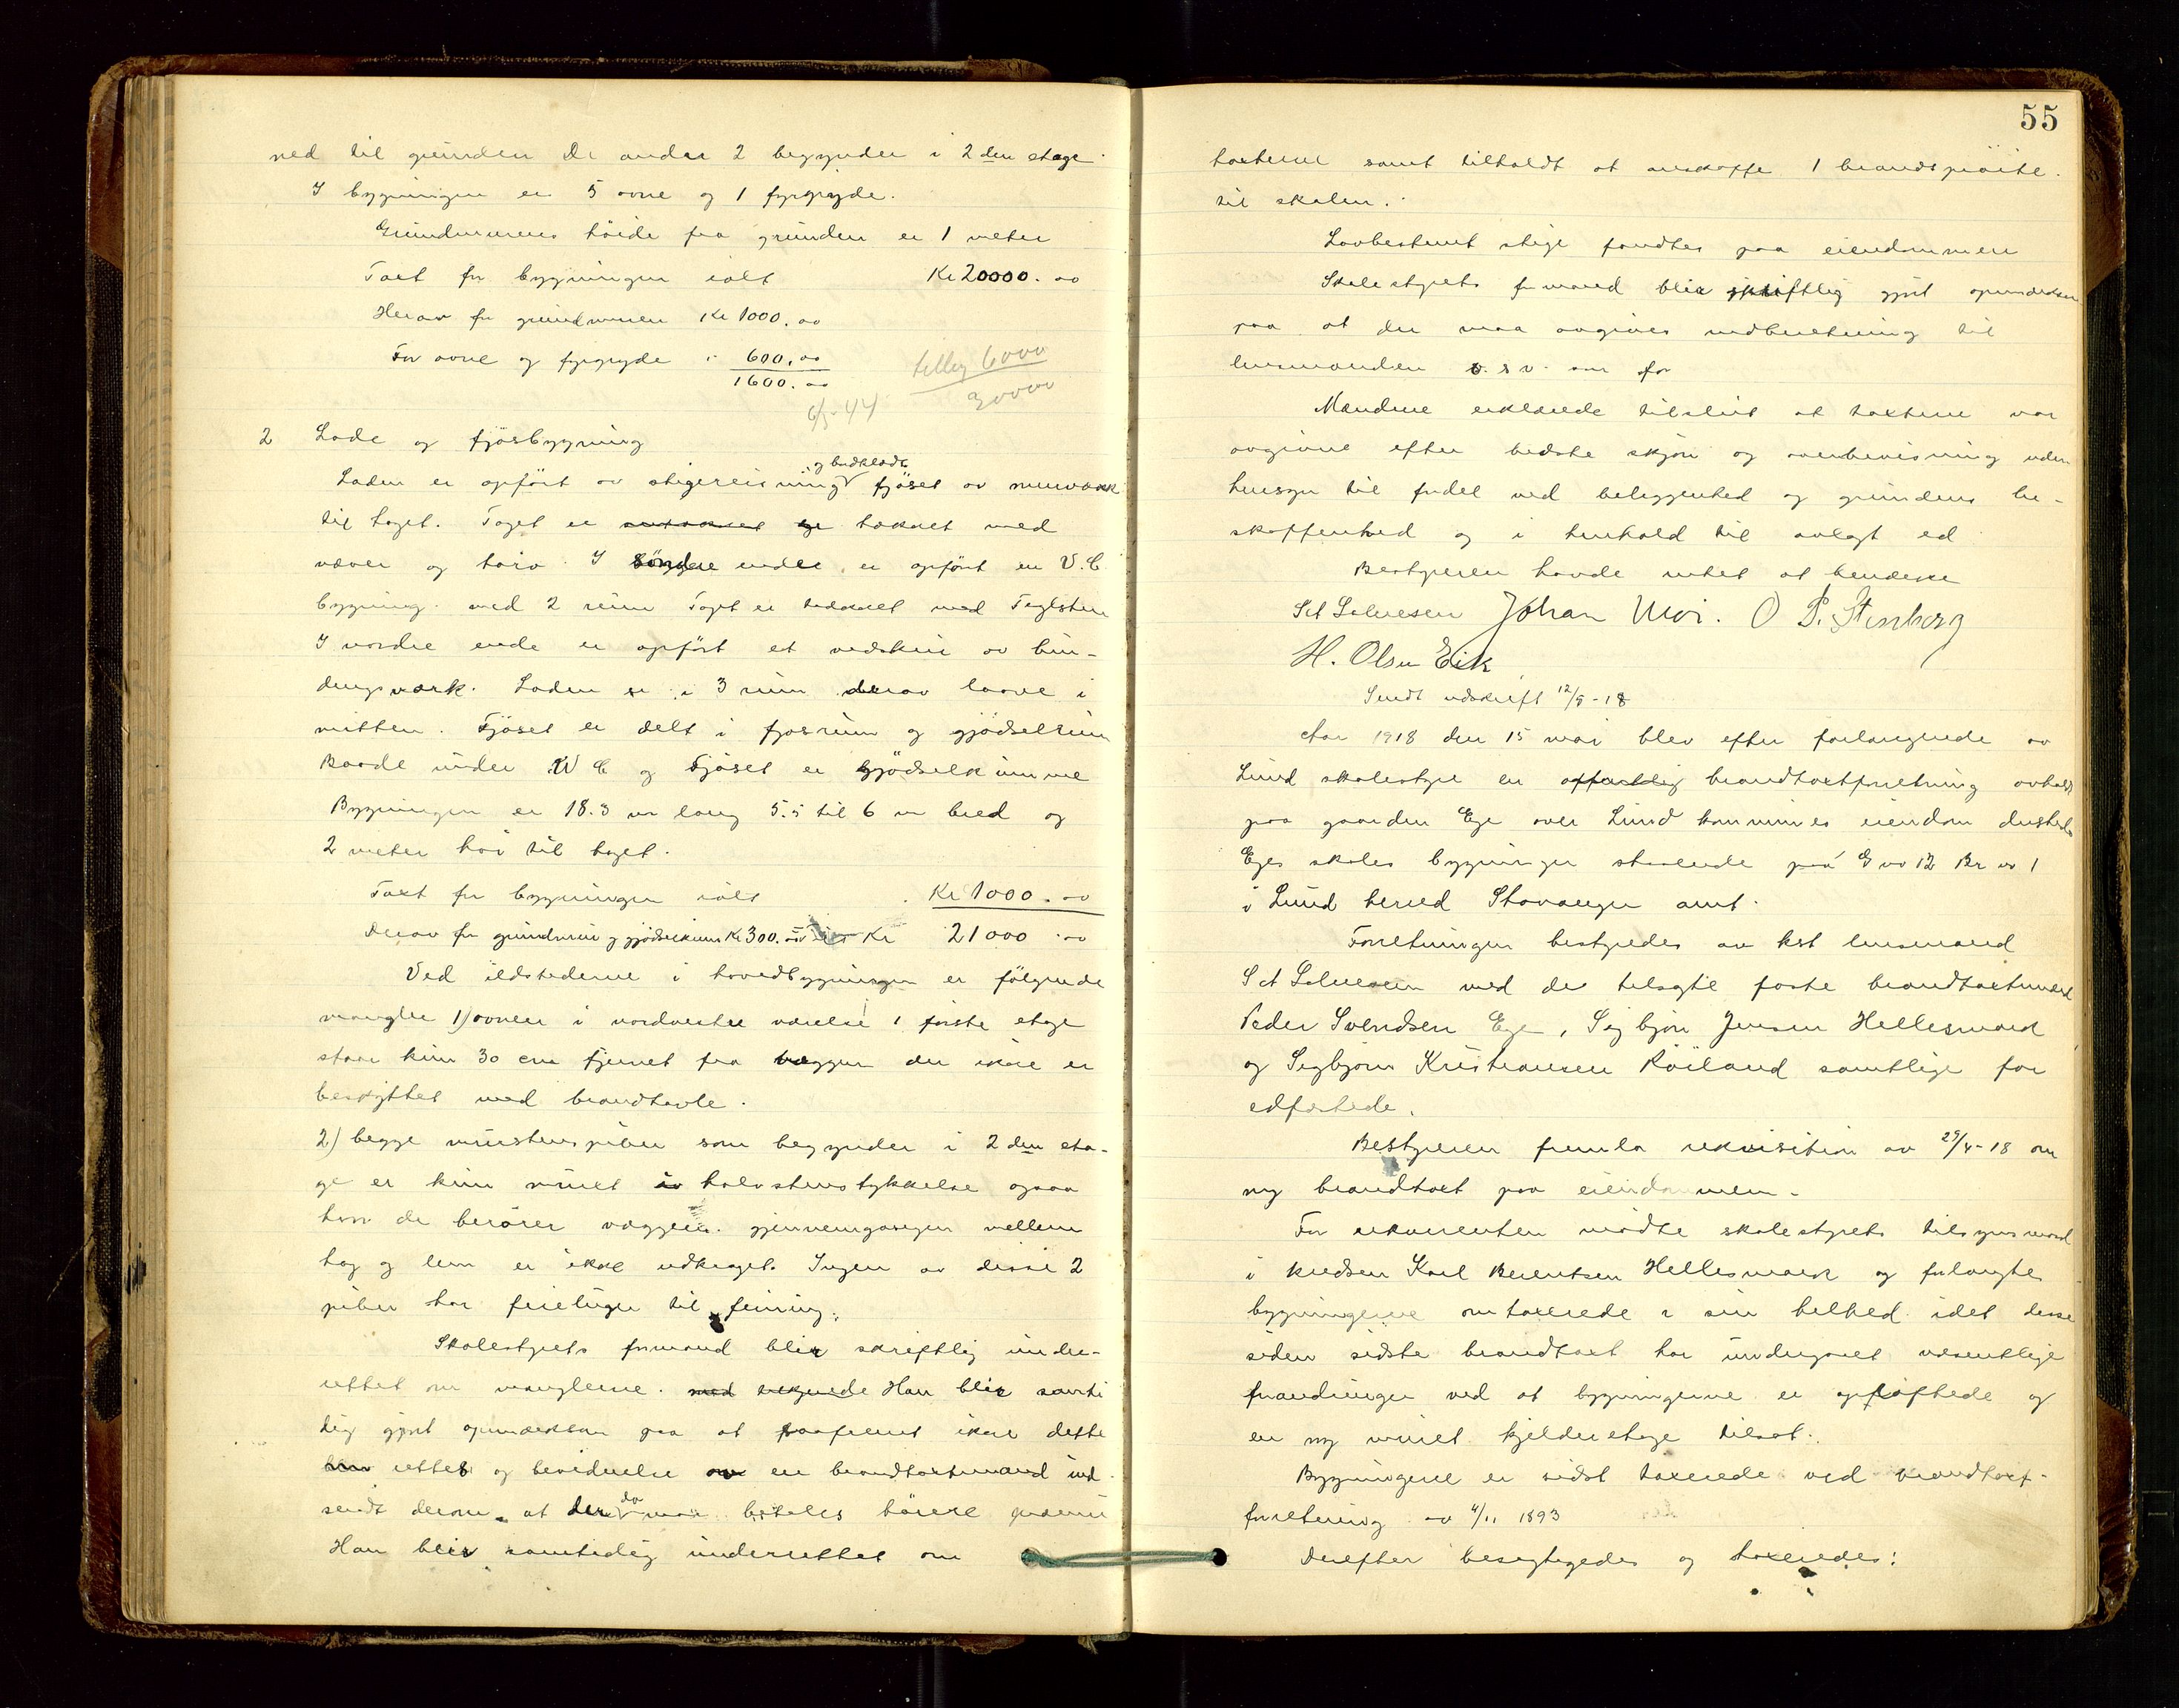 ned til grunden De andre 2 begynder i 2den etage
I bygningen er 5 ovne og 1 fyrgryde.
Grundmurens höide fra grunden er 1 meter
Taxt for bygningen ialt Kr 20000.00
Herav for grundmuren Kr 1000.00
For ovne og fyrgryde " 600.00
1600.00
tilleg 6000
30000
6/5-44
2 Lade og fjösbygning
og bordklædt
Laden er opfört av stigereisning fjöset av murværk
til taget. Taget er tækket med
næver og torv. I söndre ende er opfört en V.C
bygning med 2 rum Taget er tækket med Teglsten
I nordre ende er opfört et vedskur av bin-
dingsværk. Laden er i 3 rum derav laave i
mitten. Fjöset er delt i fjosrum og gjödselrum
Baade under W C og Fjöset er gjödselkumme
Bygningen er 18.3 m lang 5.5 til 6 m bred og
2 meter höi til taget.
Taxt for bygningen ialt Kr 1000.00
Derav for grundmur og gjödselkum Kr 300.00 Kr 21000.00
Ved ildstederne i hovedbygningen er fölgende
mangler 1) ovnen i nordvestre værelse i förste etage
staar kun 30 cm fjernet fra væggen der ikke er
beskyttet med brandtavle.
2) begge murstenspiber som begynder i 2den eta-
ge er kun muret i halvstenstykkelse ogsaa
hvor de berører væggen. gjennemgangen mellem
tag og lem er ikke udkraget. Ingen av disse 2
piber har feieluger til feining.
Skolestyrets formand blir skriftlig under-
rettet om manglerne. med Han blir samti
dig gjort opmerksom paa at saafremt ikke dette
rettes og bevidnelse av en brandtaxtmand ind-
sendt derom, at der da maa betales höiere præmie
Han blir samtidig underrettet om
55
taxterne samt tilholdt at anskaffe 1 brandspröite
til skolen.
Lovbestemt stige fandtes paa eiendommen
Skolestyrets formand blir skriftlig gjort opmerksom
paa at der maa avgives indberetning til
lensmanden o.s.v. som for
Mændene erklærede tilslut at taxterne var
avgivne efter bedste skjön og overbevisning uden
hensyn til fordel ved beliggenhed og grundens be-
skaffenhed og i henhold til avlagt ed
Bestyreren havde intet at bemerke
Set Salvesen Johan Moi. O P. Stenberg
H. Olsen Eik
Sendt udskrift 12/5-18
Aar 1918 den 15 mai blev efter forlangende av
Lund skolestyre en offentlig brandtaxtforretning avholdt
paa gaarden Ege over Lund kommunes eiendom dersteds
Eges skoles bygninger staaende paa G no 12 Br no 1
i Lund herred Stavanger amt.
Forretningen bestyredes av kst lensmand
Set Salvesen med de tilsagte faste brandtaxtmænd
Peder Svendsen Ege, Sigbjörn Jensen Hellesmark
og Sigbjörn Kristiansen Röiland samtlige for
edfæstede.
Bestyreren fremla rekvisition av 29/4-18 om
ny brandtaxt paa eiendommen.
For rekvirenten mödte skolestyrets tilsynsmand
i kredsen Karl Berentsen Hellesmark og forlangte
bygningerne omtaxerede i sin helhed idet disse
siden sidste brandtaxt har undergaaet væsentlige
forandringer ved at bygningerne er opløftede og
en ny muret kjelderetage tilsat.
Bygningene er sidst taxerede ved brandtaxt-
forretning av 4/11 1893
Derefter besigtigedes og taxeredes: